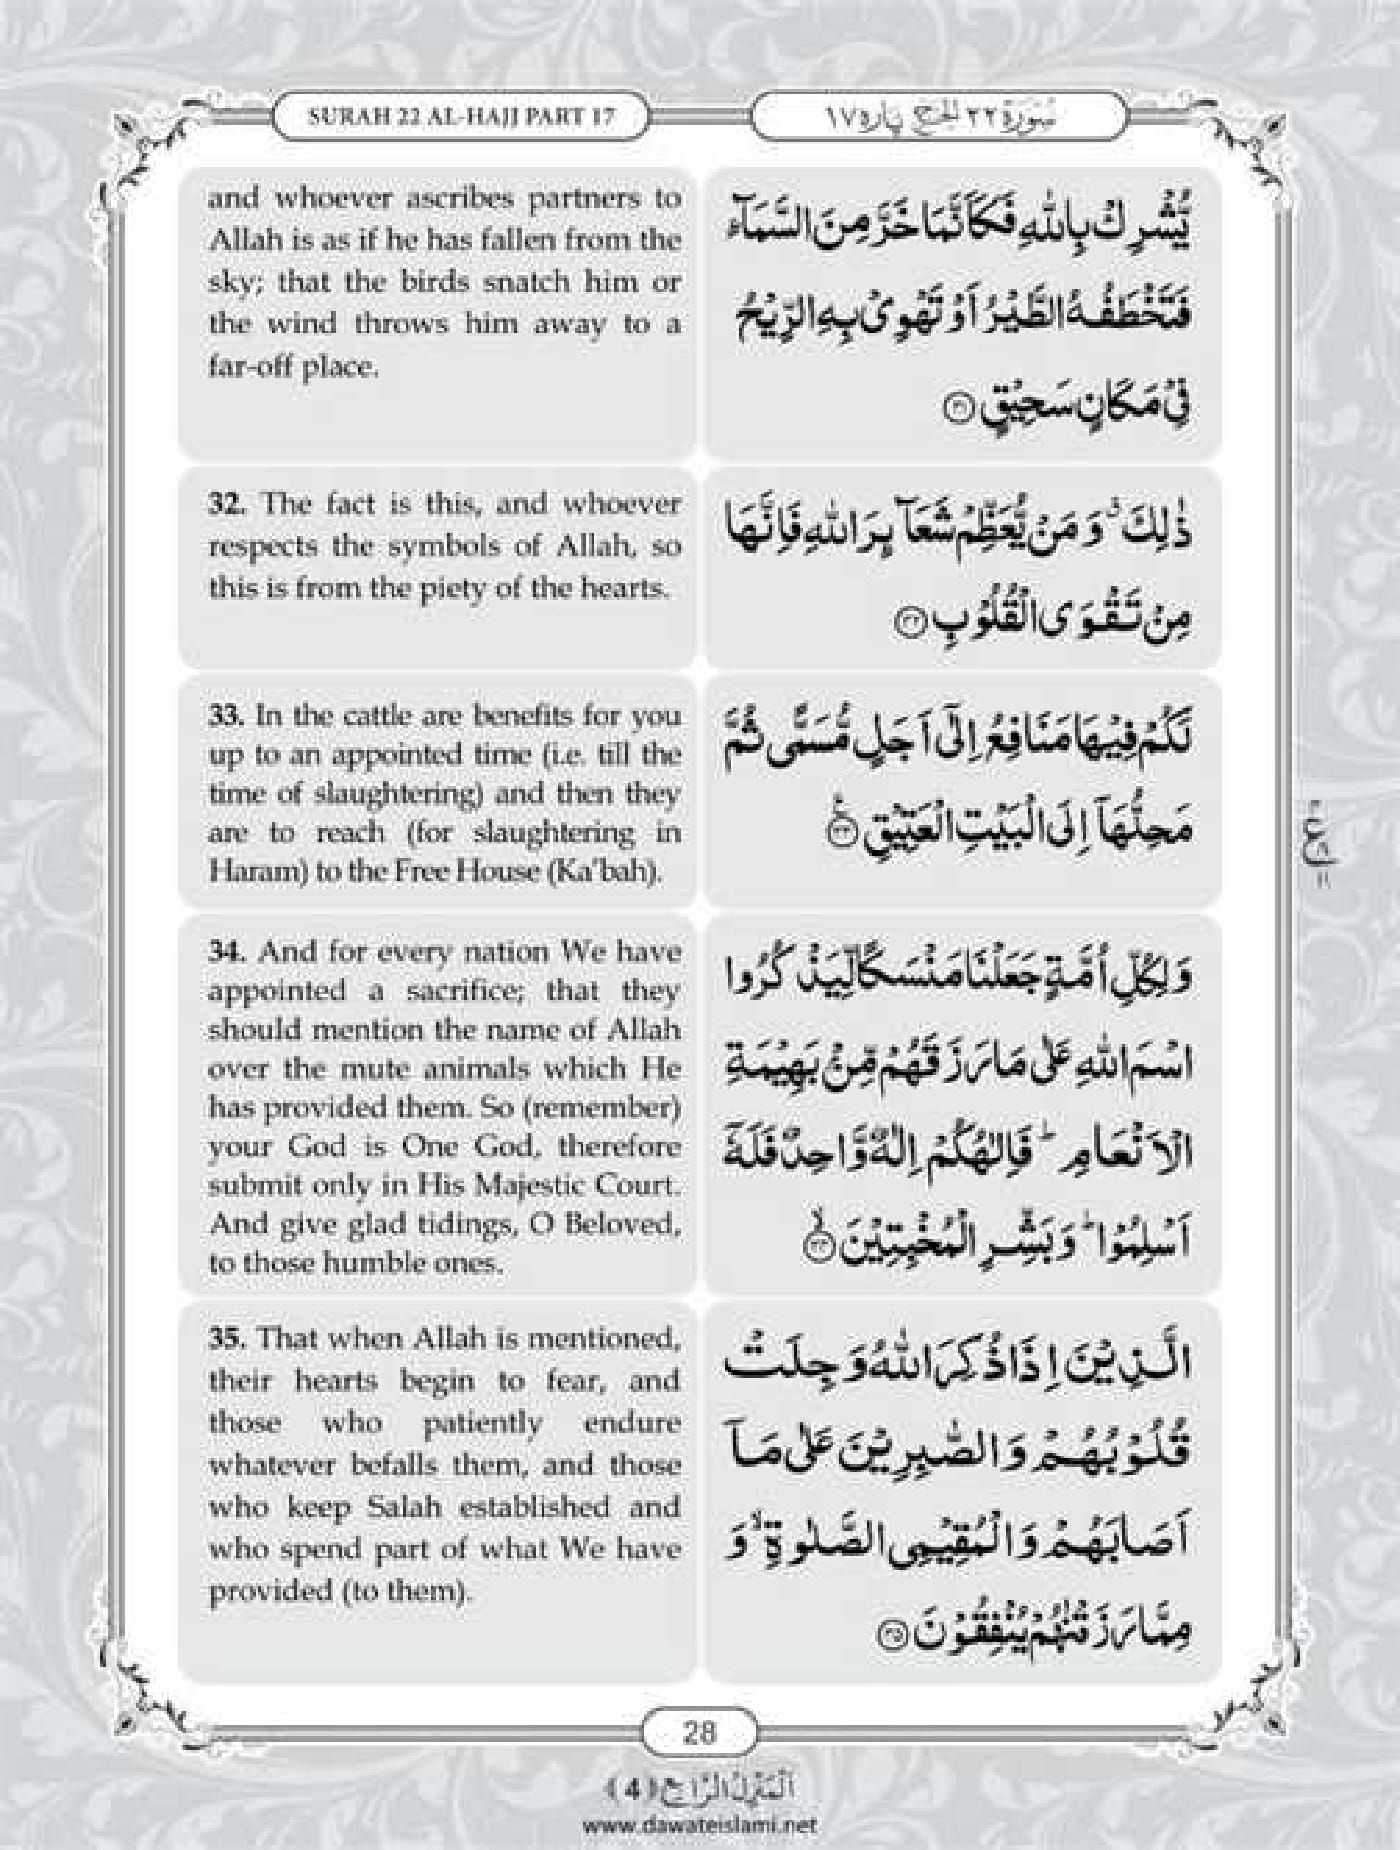 SURAH 22 AL-HAJJ PART 17
سُورَة ٢٢ الحج پاره ١٧
and whoever ascribes partners to
Allah is as if he has fallen from the
sky; that the birds snatch him or
the wind throws him away to a
far-off place.
يُّشْرِكْ بِاللّٰهِ فَكَاَنَّمَا خَرَّ مِنَ السَّمَآءِ
فَتَخْطَفُهُ الطَّيْرُ اَوْ تَهْوِيْ بِهِ الرِّيْحُ
فِيْ مَكَانٍ سَحِيْقٍ ﴿٣١﴾
32. The fact is this, and whoever
respects the symbols of Allah, so
this is from the piety of the hearts.
ذٰلِكَ ۗ وَ مَنْ يُّعَظِّمْ شَعَآىِٕرَ اللّٰهِ فَاِنَّهَا
مِنْ تَقْوَى الْقُلُوْبِ ﴿٣٢﴾
33. In the cattle are benefits for you
up to an appointed time (i.e. till the
time of slaughtering) and then they
are to reach (for slaughtering in
Haram) to the Free House (Ka’bah).
لَكُمْ فِيْهَا مَنَافِعُ اِلٰۤى اَجَلٍ مُّسَمًّى ثُمَّ
مَحِلُّهَاۤ اِلَى الْبَيْتِ الْعَتِيْقِ ﴿٣٣﴾
34. And for every nation We have
appointed a sacrifice; that they
should mention the name of Allah
over the mute animals which He
has provided them. So (remember)
your God is One God, therefore
submit only in His Majestic Court.
And give glad tidings, O Beloved,
to those humble ones.
وَ لِكُلِّ اُمَّةٍ جَعَلْنَا مَنْسَكًا لِّيَذْكُرُوا
اسْمَ اللّٰهِ عَلٰى مَا رَزَقَهُمْ مِّنْۢ بَهِيْمَةِ
الْاَنْعَامِ ؕ فَاِلٰهُكُمْ اِلٰهٌ وَّاحِدٌ فَلَهٗۤ
اَسْلِمُوْا ؕ وَ بَشِّرِ الْمُخْبِتِيْنَ ﴿٣٤﴾
35. That when Allah is mentioned,
their hearts begin to fear, and
those who patiently endure
whatever befalls them, and those
who keep Salah established and
who spend part of what We have
provided (to them).
الَّذِيْنَ اِذَا ذُكِرَ اللّٰهُ وَجِلَتْ
قُلُوْبُهُمْ وَ الصّٰبِرِيْنَ عَلٰى مَاۤ
اَصَابَهُمْ وَ الْمُقِيْمِي الصَّلٰوةِ ۙ وَ
مِمَّا رَزَقْنٰهُمْ يُنْفِقُوْنَ ﴿٣٥﴾
28
اَلْمَنْزِلُ الرَّابِع (4)
www.dawateislami.net